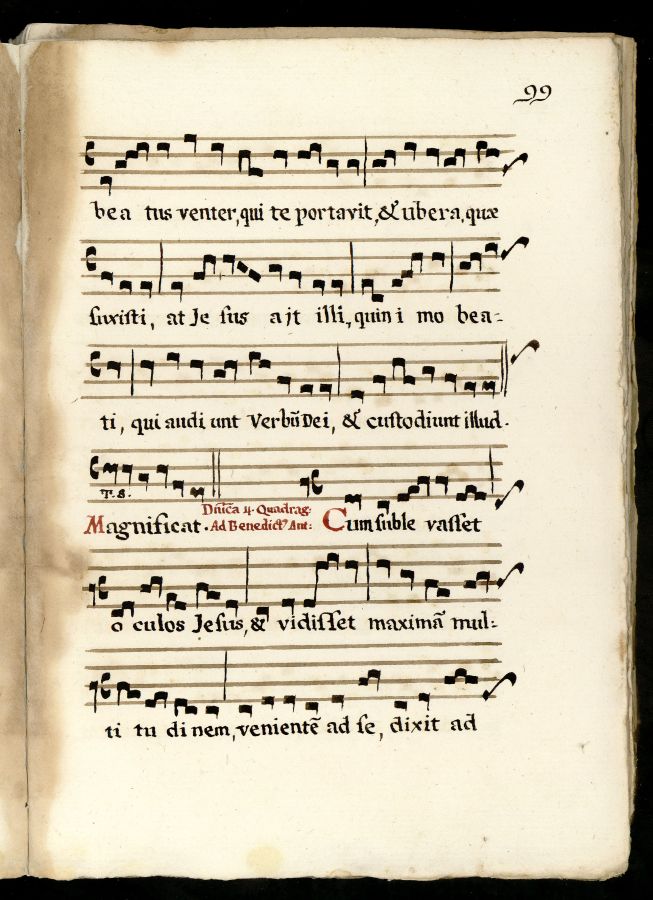 99
bea tus venter, qui te portavit, & ubera, quæ
suxisti, at Je sus ajt illi, quin i mo bea-
ti, qui audi unt Verbũ Dei, & custodiunt illud.
T. 8.
Magnificat. Dñica 4. Quadrag: Ad Benedict. Ant: Cum suble vasset
o culos Jesus, & vidisset maximã mul-
ti tu di nem, venientẽ ad se, dixit ad